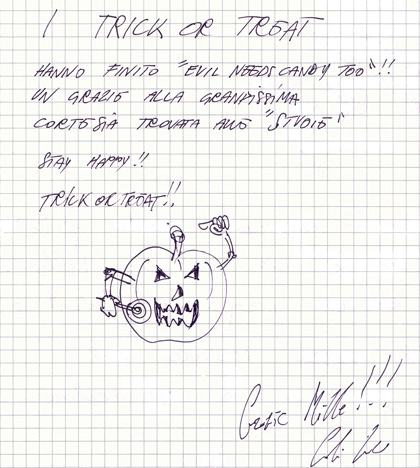 I TRICK OR TREAT
HANNO FINITO "EVIL NEEDS CANDY TOO"!!
UN GRAZIE ALLA GRANDISSIMA
CORTESIA TROVATA ALLO "STUDIO"
STAY HAPPY!!
TRICK OR TREAT!!
Grazie Mille!!!